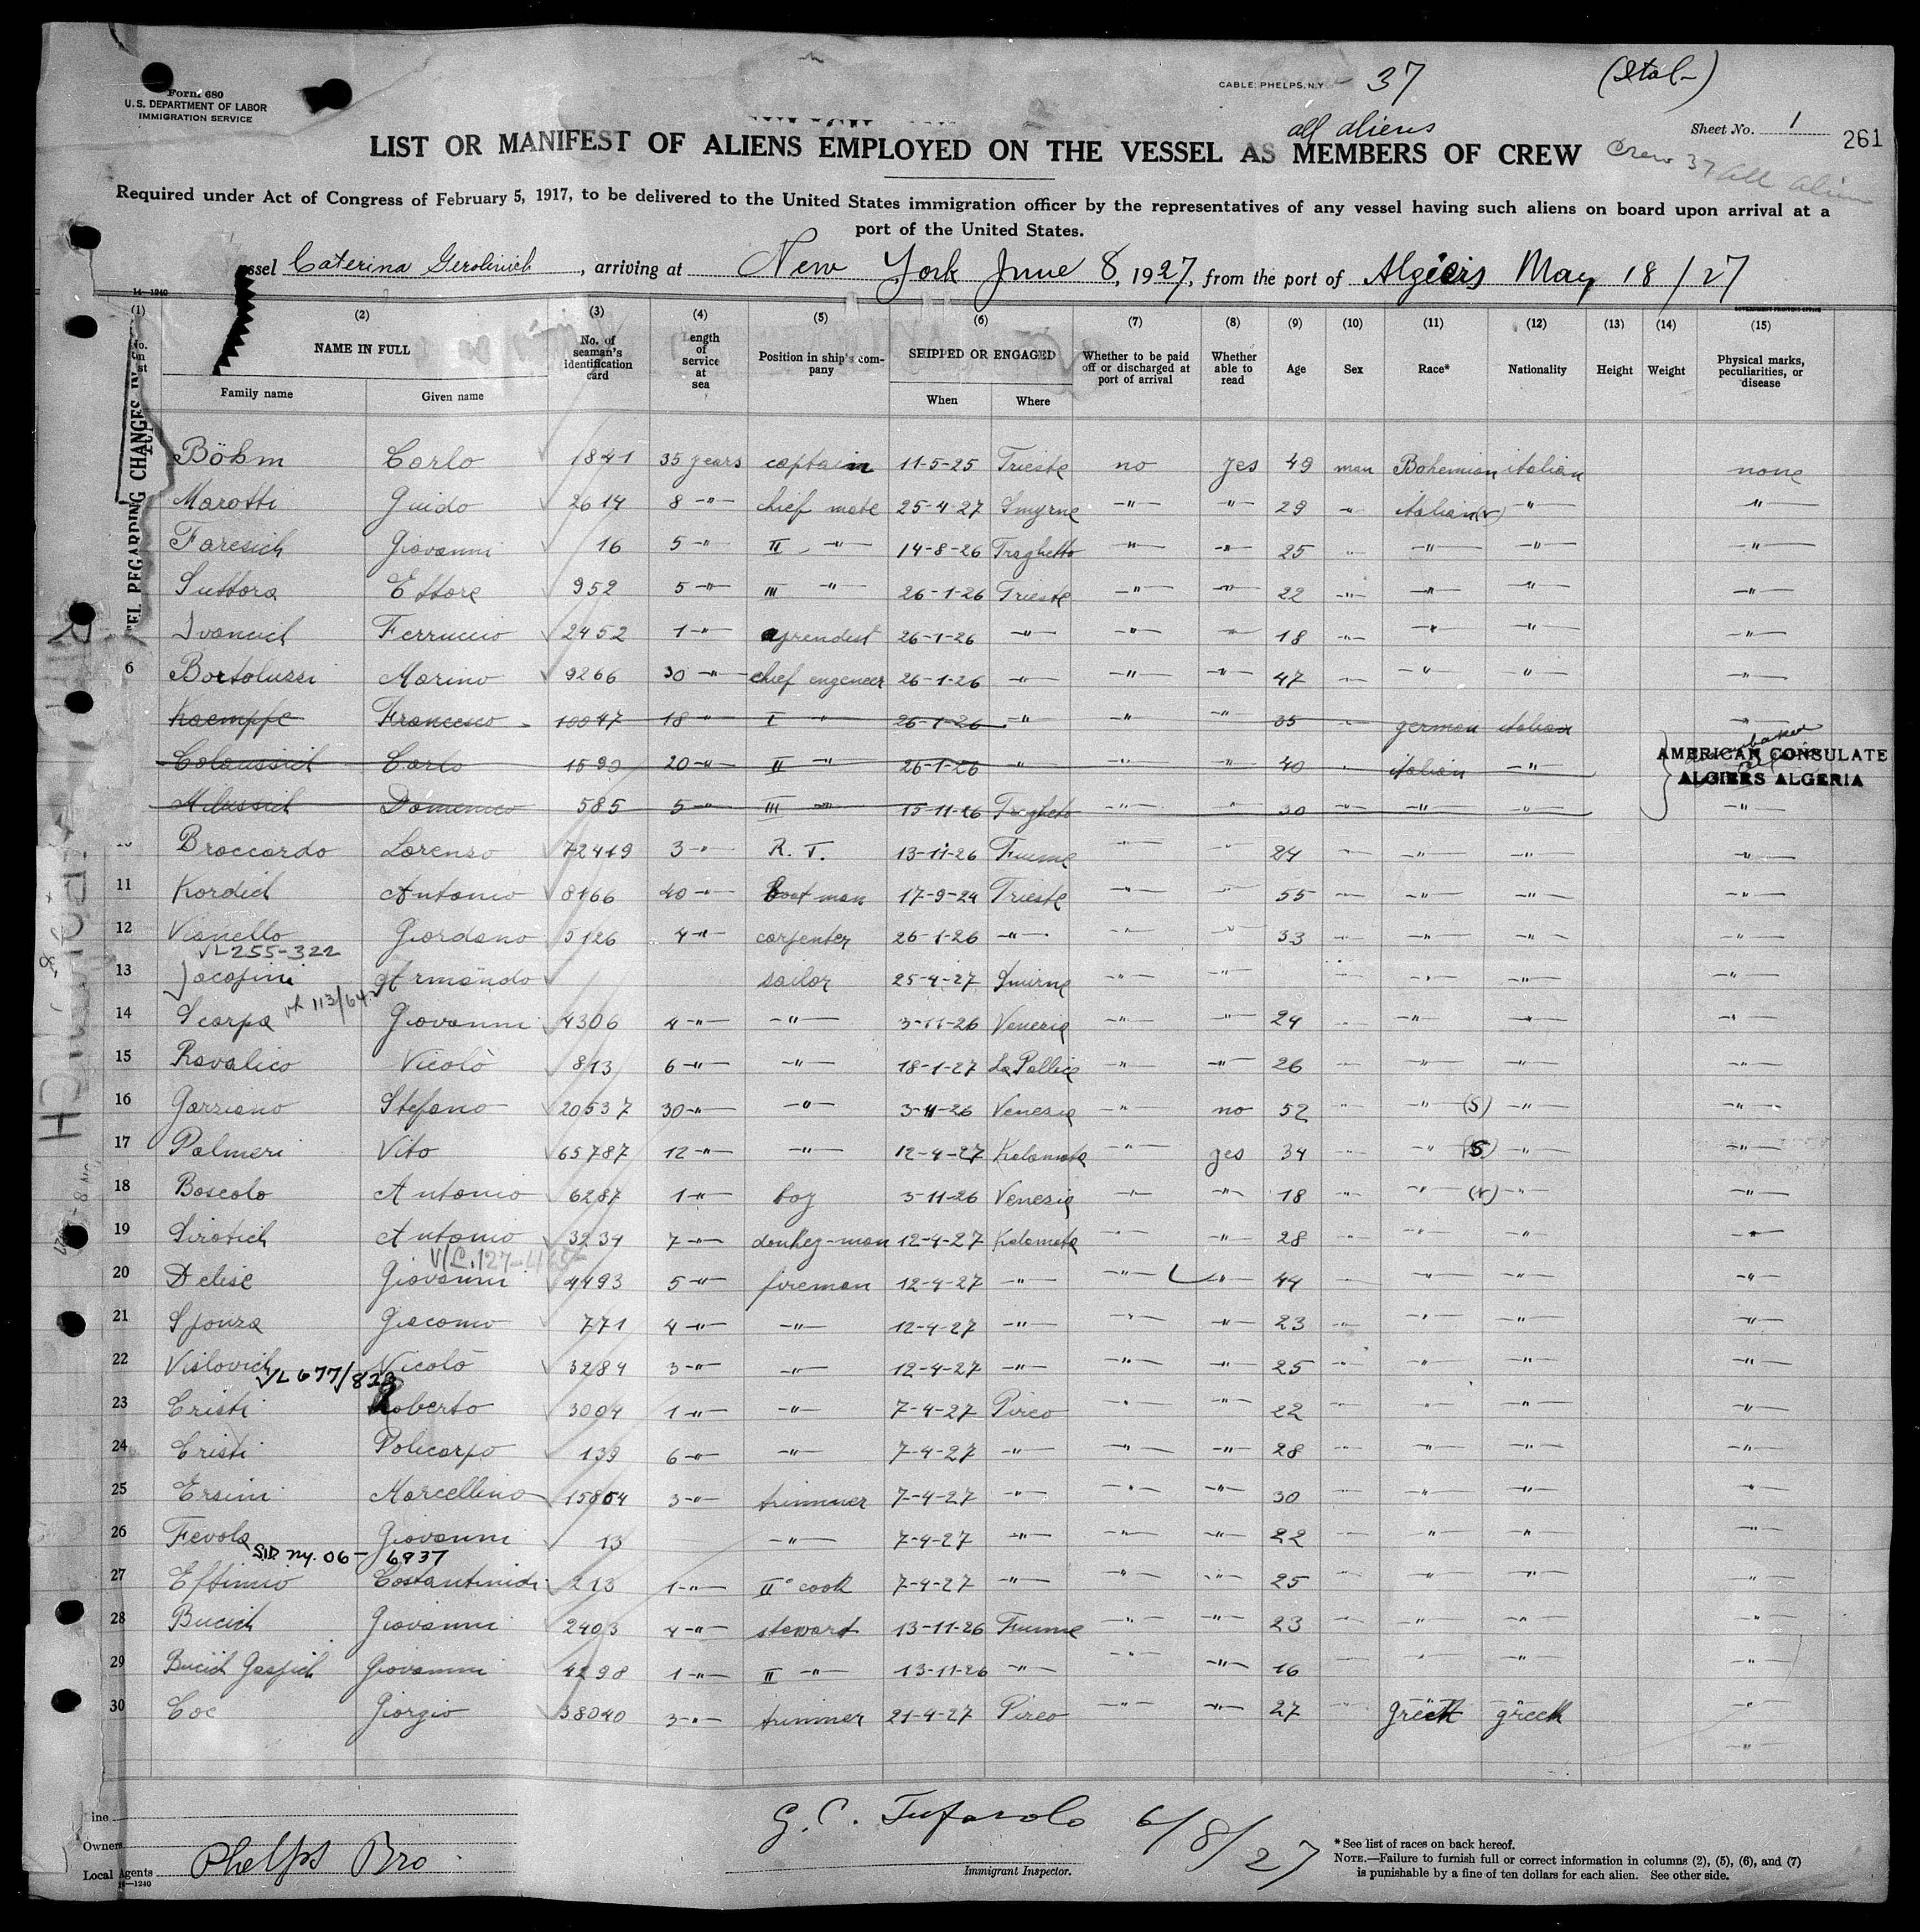 CABLE: PHELPS, N.Y.
37
(Ital-)
Form 680
U.S. DEPARTMENT OF LABOR
IMMIGRATION SERVICE
all aliens
Sheet No. 1
261
LIST OR MANIFEST OF ALIENS EMPLOYED ON THE VESSEL AS MEMBERS OF CREW
Crew 37 all alien
Required under Act of Congress of February 5, 1917, to be delivered to the United States immigration officer by the representatives of any vessel having such aliens on board upon arrival at a
port of the United States.
ssel Caterina Gerolimich, arriving at New York June 8, 1927, from the port of Algiers May 18/27
14-1240
(1) (2) (3) (4) (5) (6) (7) (8) (9) (10) (11) (12) (13) (14) (15)
NAME IN FULL No. of seaman's identification card Length of service at sea Position in ship's company SHIPPED OR ENGAGED Whether to be paid off or discharged at port of arrival Whether able to read Age Sex Race* Nationality Height Weight Physical marks, peculiarities, or disease
Family name Given name When Where
Böhm Carlo 1841 35 years captain 11-5-25 Trieste no yes 49 man Bohemian italian none
Marotti Guido 2614 8 -"- chief mate 25-4-27 Smyrne -"- -"- 29 -"- italian(N) -"- -"-
Faresich Giovanni 16 5 -"- II -"- 14-8-26 Traghetto -"- -"- 25 -"- -"- -"- -"-
Suttora Ettore 952 5 -"- III -"- 26-1-26 Trieste -"- -"- 22 -"- -"- -"- -"-
Ivancich Ferruccio 2452 1 -"- aprendist 26-1-26 -"- -"- -"- 18 -"- -"- -"- -"-
6 Bortoluzzi Marino 9266 30 -"- chief engeneer 26-1-26 -"- -"- -"- 47 -"- -"- -"-
Kaempfe Francesco 10047 18 -"- I -"- 26-1-26 -"- -"- -"- 35 -"- german italian -"-
Colaussich Carlo 1590 20 -"- II -"- 26-1-26 -"- -"- -"- 40 -"- italian -"-
AMERICAN CONSULATE
ALGIERS ALGERIA
Milussich Domenico 585 5 -"- III -"- 15-11-26 Tragheto -"- -"- 30 -"- -"- -"- -"-
Braccardo Lorenzo 72419 3 -"- R. T. 13-11-26 Fiume -"- -"- 24 -"- -"- -"- -"-
11 Kordich Antonio 8166 40 -"- Boot man 17-9-24 Trieste -"- -"- 55 -"- -"- -"- -"-
12 Vianello Giordano 5126 4 -"- carpenter 26-1-26 -"- -"- -"- 33 -"- -"- -"- -"-
V/L 255-322
13 Jacopini Armando sailor 25-4-27 Smirne -"- -"- -"- -"- -"-
VL 113/642
14 Scarpa Giovanni 4306 4 -"- -"- 3-11-26 Venezia -"- -"- 24 -"- -"- -"- -"-
15 Ravalico Nicolò 813 6 -"- -"- 18-1-27 La Pallice -"- -"- 26 -"- -"- -"- -"-
16 Garziano Stefano 20537 30 -"- -"- 3-11-26 Venezia -"- no 52 -"- -"- (S) -"- -"-
17 Palmeri Vito 65787 12 -"- -"- 12-4-27 Kalamata -"- yes 34 -"- -"- (S) -"- -"-
18 Boscolo Antonio 6287 1 -"- boy 3-11-26 Venezia -"- -"- 18 -"- -"- (N) -"- -"-
19 Sirotich Antonio 3234 7 -"- donkey-man 12-4-27 Kalamata -"- -"- 28 -"- -"- -"- -"-
V/L.127-465
20 Delise Giovanni 4493 5 -"- fireman 12-4-27 -"- -"- -"- 44 -"- -"- -"- -"-
21 Sponza Giacomo 771 4 -"- -"- 12-4-27 -"- -"- -"- 23 -"- -"- -"- -"-
22 Vislovich Nicolò 3284 3 -"- -"- 12-4-27 -"- -"- -"- 25 -"- -"- -"- -"-
V/L 677/823
23 Cristi Roberto 3004 1 -"- -"- 7-4-27 Pireo -"- -"- 22 -"- -"- -"- -"-
24 Cristi Policarpo 139 6 -"- -"- 7-4-27 -"- -"- -"- 28 -"- -"- -"- -"-
25 Ersini Marcellino 15864 3 -"- trimmer 7-4-27 -"- -"- -"- 30 -"- -"- -"- -"-
26 Fevola Giovanni 13 -"- 7-4-27 -"- -"- -"- 22 -"- -"- -"- -"-
SID NY. 06- 6937
27 Eftimio Costantinidi 213 1 -"- II° cook 7-4-27 -"- -"- -"- 25 -"- -"- -"- -"-
28 Bucich Giovanni 2403 4 -"- steward 13-11-26 Fiume -"- -"- 23 -"- -"- -"-
29 Bucich Gaspich Giovanni 4298 1 -"- II -"- 13-11-26 -"- -"- -"- 16 -"- -"- -"-
30 Coc Giorgio 38040 3 -"- trimmer 21-4-27 Pireo -"- -"- 27 -"- greek greek -"-
-"-
ine
Owners
Local Agents Phelps Bro.
14-1240
G. C. Tufarolo 6/8/27
Immigrant Inspector.
* See list of races on back hereof.
NOTE.—Failure to furnish full or correct information in columns (2), (5), (6), and (7)
is punishable by a fine of ten dollars for each alien. See other side.